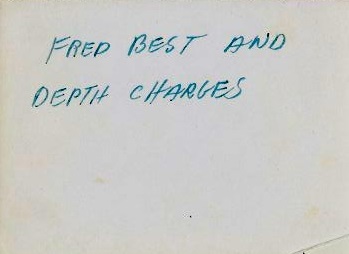 FRED BEST AND
DEPTH CHARGES